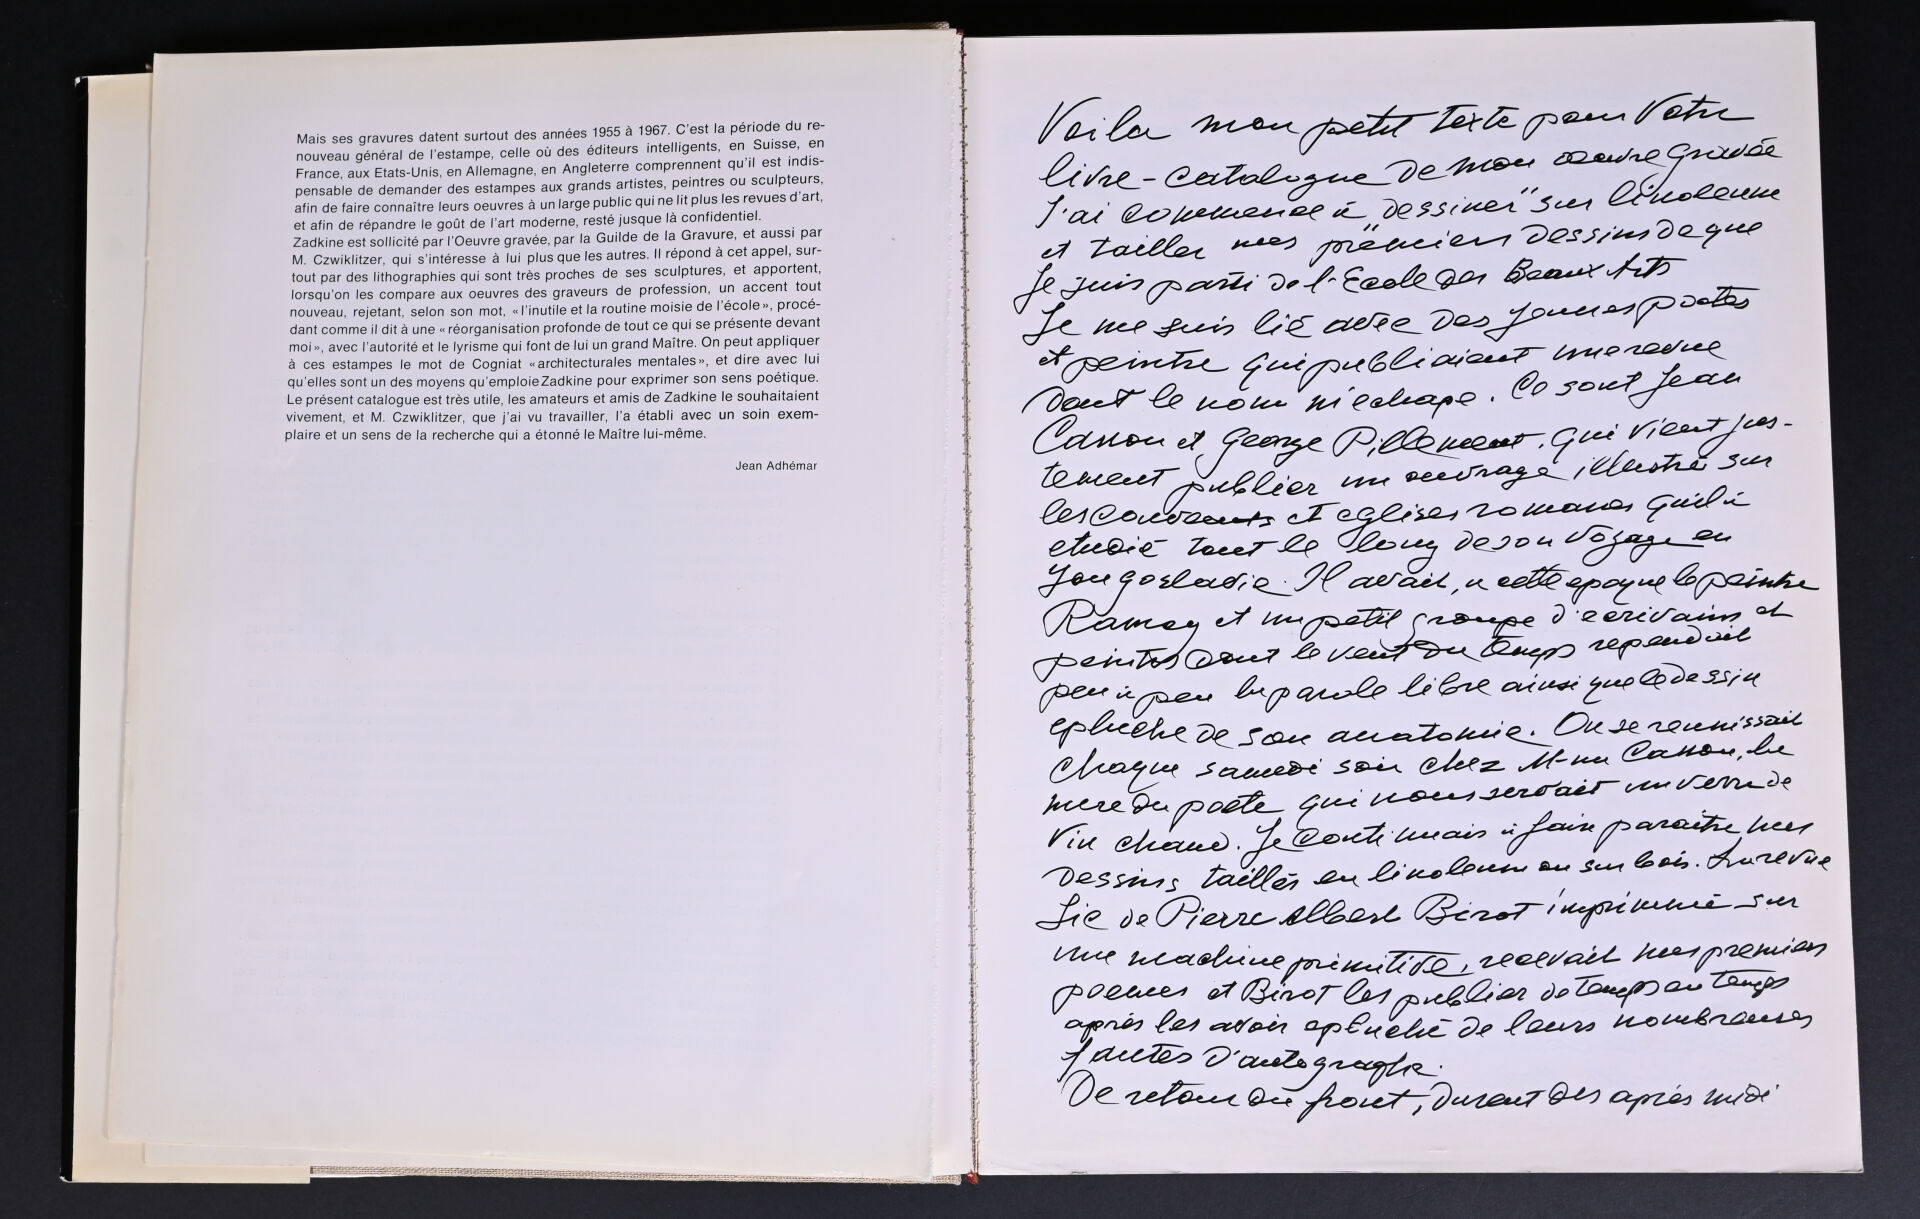 Mais ses gravures datent surtout des années 1955 à 1967. C'est la période du re-
nouveau général de l'estampe, celle où des éditeurs intelligents, en Suisse, en
France, aux Etats-Unis, en Allemagne, en Angleterre comprennent qu'il est indis-
pensable de demander des estampes aux grands artistes, peintres ou sculpteurs,
afin de faire connaître leurs oeuvres à un large public qui ne lit plus les revues d'art,
et afin de répandre le goût de l'art moderne, resté jusque là confidentiel.
Zadkine est sollicité par l'Oeuvre gravée, par la Guilde de la Gravure, et aussi par
M. Czwiklitzer, qui s'intéresse à lui plus que les autres. Il répond à cet appel, sur-
tout par des lithographies qui sont très proches de ses sculptures, et apportent,
lorsqu'on les compare aux oeuvres des graveurs de profession, un accent tout
nouveau, rejetant, selon son mot, «l'inutile et la routine moisie de l'école», procé-
dant comme il dit à une «réorganisation profonde de tout ce qui se présente devant
moi», avec l'autorité et le lyrisme qui font de lui un grand Maître. On peut appliquer
à ces estampes le mot de Cogniat «architecturales mentales», et dire avec lui
qu'elles sont un des moyens qu'emploie Zadkine pour exprimer son sens poétique.
Le présent catalogue est très utile, les amateurs et amis de Zadkine le souhaitaient
vivement, et M. Czwiklitzer, que j'ai vu travailler, l'a établi avec un soin exem-
plaire et un sens de la recherche qui a étonné le Maître lui-même.
Jean Adhémar
Voila mon petit texte pour Votre
livre-catalogue de mon oeuvre gravée
J'ai commencé à „dessiner" sur linoleum
et tailler mes premiers dessins de que
Je suis parti de l'Ecole des Beaux Arts
Je me suis lié avec des jeunes poetes
et peintre qui publiaient une revue
dont le nom m'echape. Ce sont Jean
Canon et George Pillement, qui vient jus-
tement publier un ouvrage illustré sur
les couvents et eglises romanes qu'il à
etudié tout le long de son Voyage en
Yougoslavie. Il avait, à cette epoque le peintre
Ramey et un petit groupe d'ecrivains et
peintres dont le vent du temps rependait
peu à peu la parole libre ainsi que le dessin
epluché de son anatomie. On se reunissait
chaque samedi soir chez M-me Canon, la
mere du poete qui nous servait un verre de
Vin chaud. Je continuais à faire paraitre mes
dessins taillés en linoleum ou sur bois. La revue
Sic de Pierre Albert Birot imprimmé sur
une machine primitive, recevait mes premiers
poemes et Birot les publier de temps en temps
après les avoir epluché de leurs nombreuses
fautes d'autographe.
De retour du front, durant des après midi